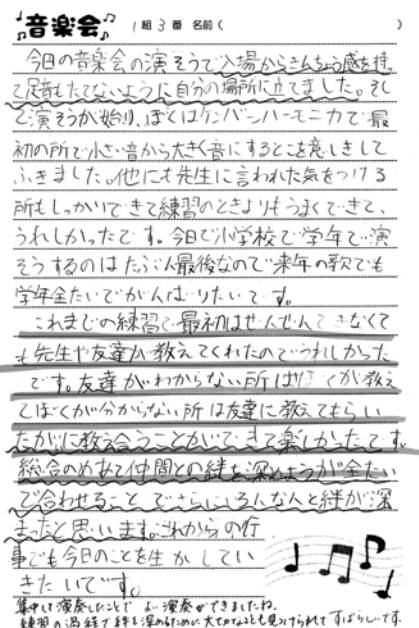 音楽会 1組3番 名前( )
今日の音楽会の演そうで入場からきんちょう感を持っ
て足音もたてないように自分の場所に立てました。そし
て演そうが始り、ぼくはケンバンハーモニカで最
初の所で小さい音から大きく音にするとこを意しきして
ふきました。他にも先生に言われた気をつける
所もしっかりできて練習のときよりもうまくできて、
うれしかったです。今日で小学校で学年で演
そうするのはたぶん最後なので来年の歌でも
学年全たいでがんばりたいです。
これまでの練習で最初はぜんぜんできなくて
も先生や友達が教えてくれたのでうれしかった
です。友達がわからない所はぼくが教え
てぼくが分からない所は友達に教えてもらい
たがいに教え合うことができて楽しかったです。
総合のめあて仲間との絆を深めようが全たい
で合わせることでさらにいろんな人と絆が深
まったと思います。これからの行
事でも今日のことを生かしてい
きたいです。
集中した演奏したことで よい演奏ができましたね。
練習の過程で絆を深めるために大切なことも見つけられてすばらしいです。